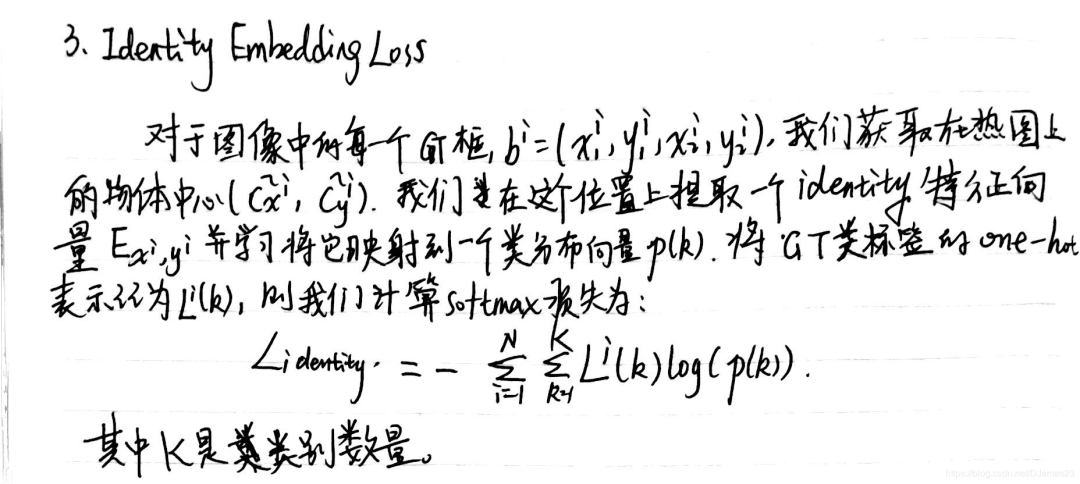 3. Identity Embedding Loss
对于图像中的每一个GT框, b^i=(x_1^i, y_1^i, x_2^i, y_2^i), 我们获取在热图上
的物体中心(\tilde{c}_x^i, \tilde{c}_y^i). 我们在这个位置上提取一个identity特征向
量 E_{x^i,y^i} 并学习将它映射到一个类分布向量p(k). 将GT类标签的one-hot
表示记为L^i(k), 则我们计算softmax损失为:
L_{identity} = - \sum_{i=1}^{N} \sum_{k=1}^{K} L^i(k) log(p(k)).
其中K是类别数量。